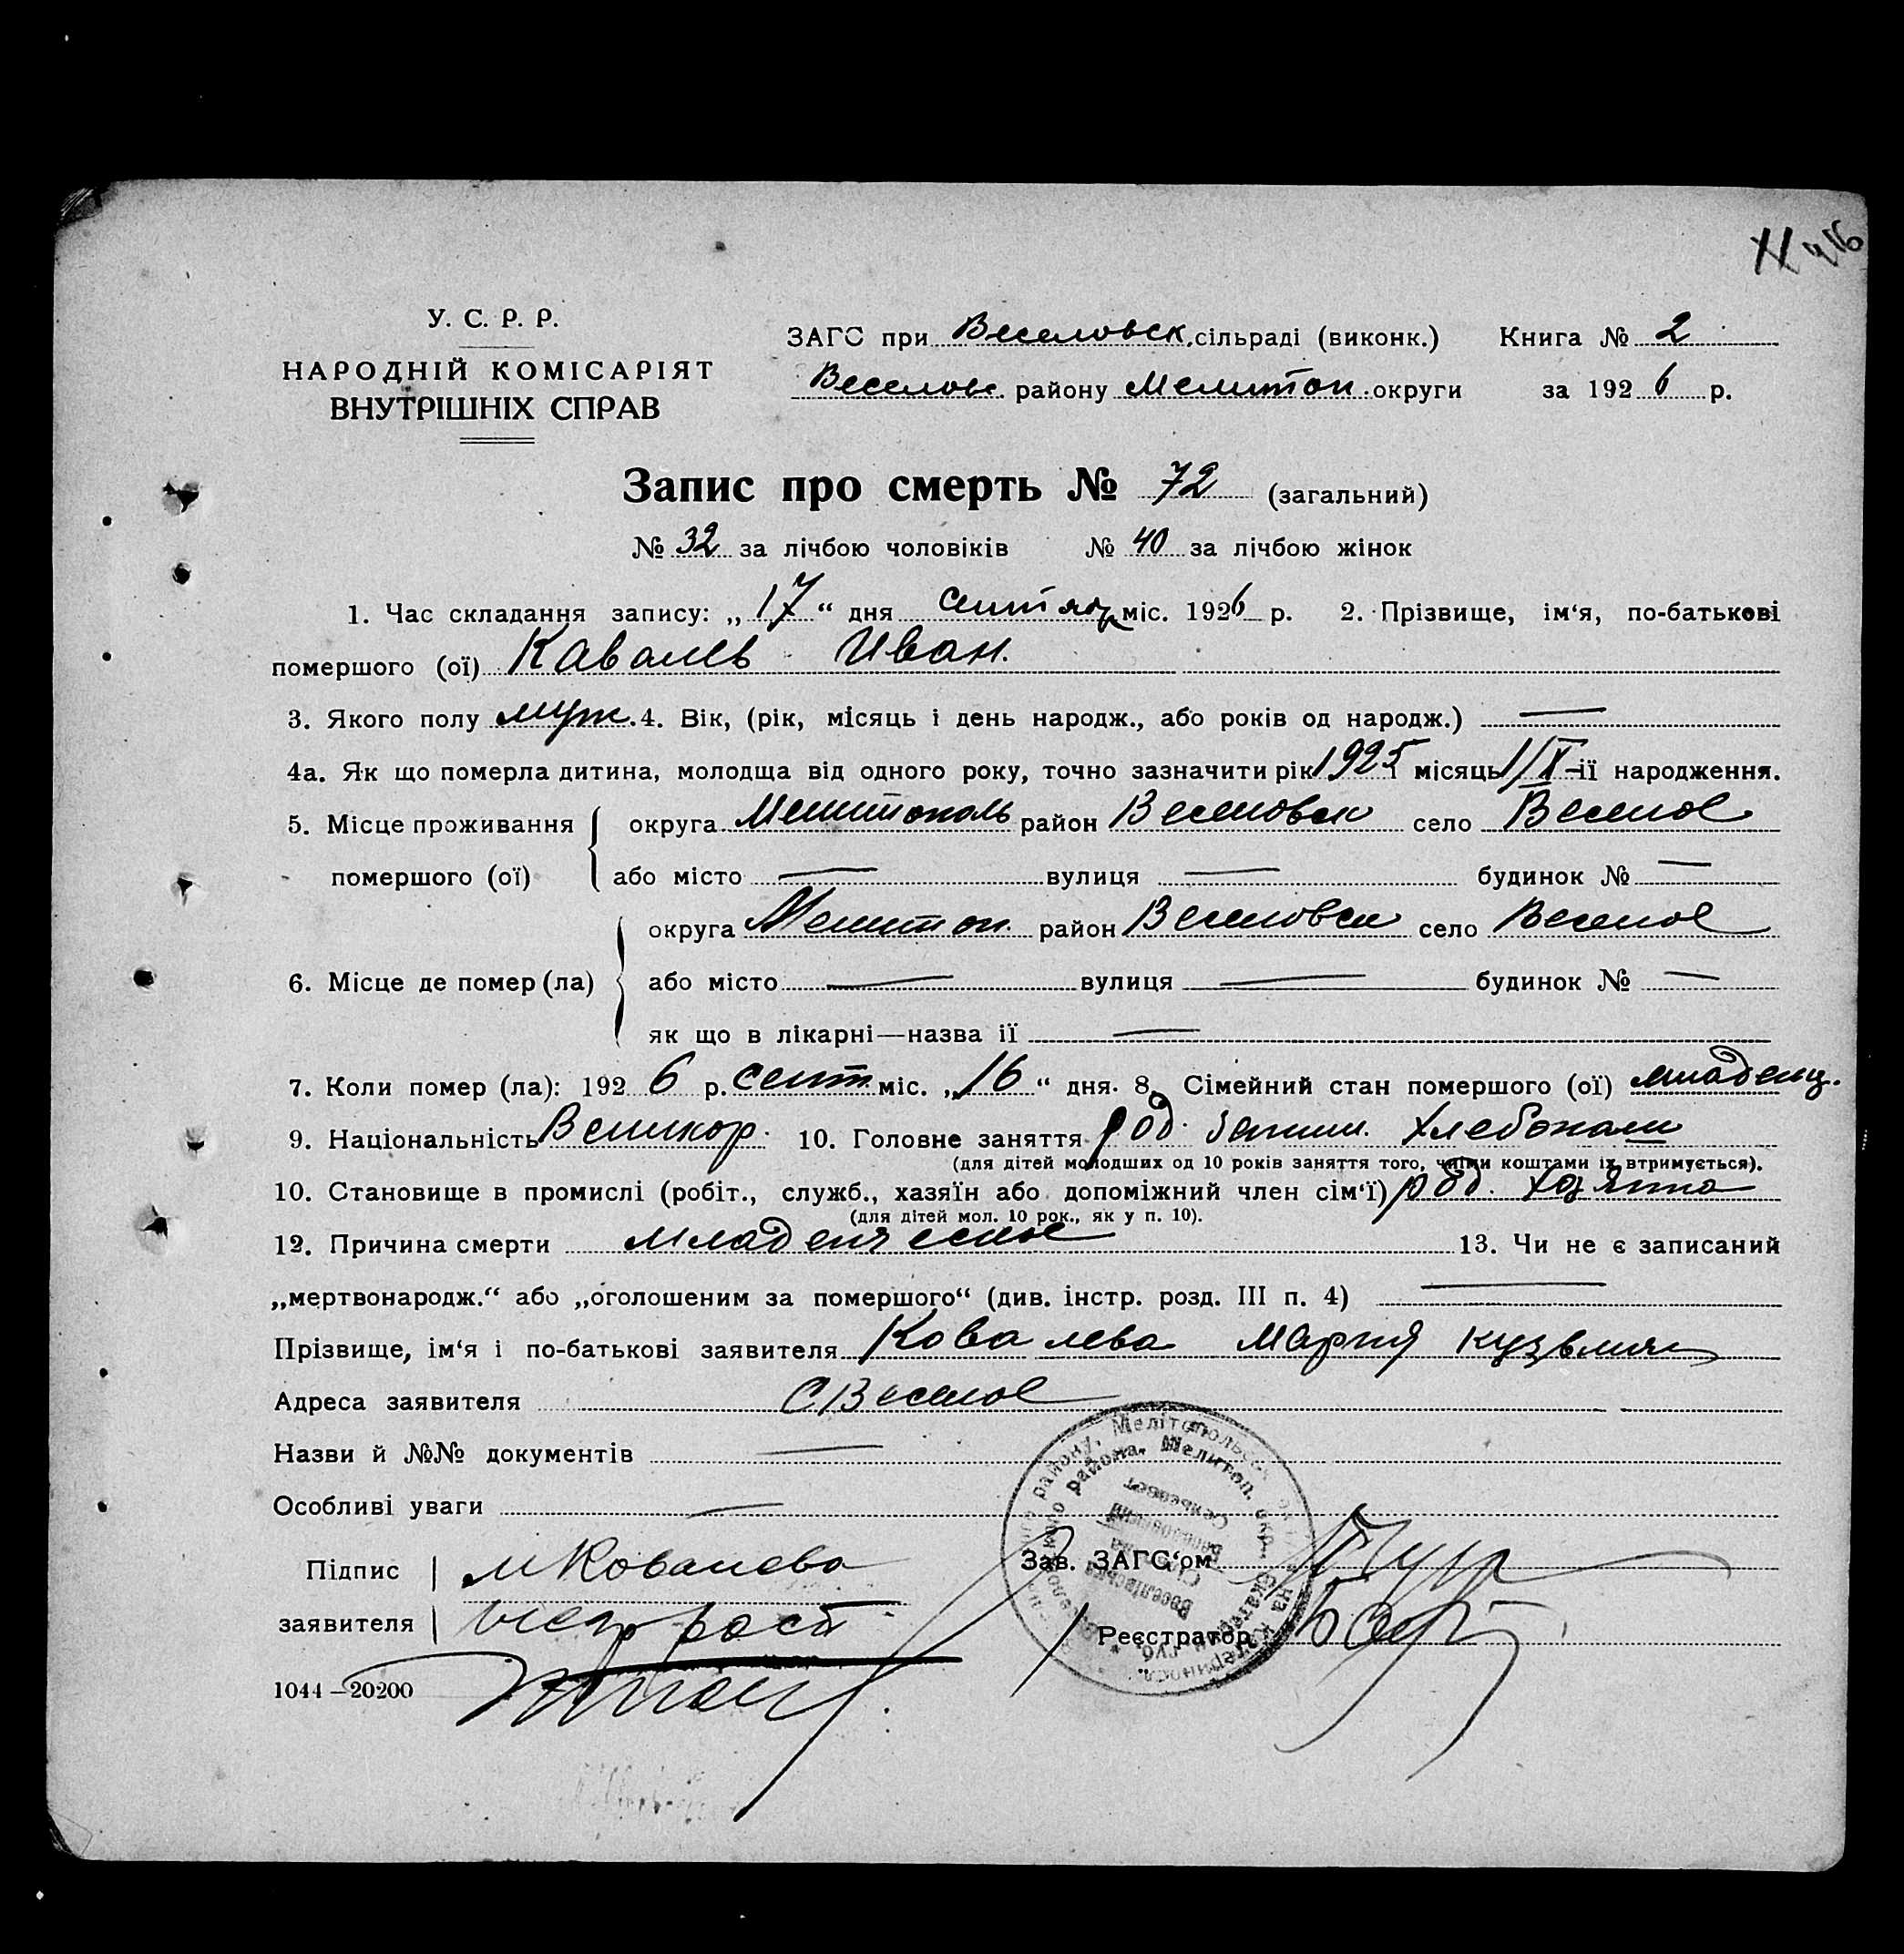 У. С. Р. Р.
НАРОДНІЙ КОМІСАРІЯТ
ВНУТРІШНІХ СПРАВ
ЗАГС при Веселовск. сільраді (виконк.) Книга № 2
Веселовс. району Мелитоп. округи за 1926 р.
Запис про смерть № 72 (загальний)
№ 32 за лічбою чоловіків № 40 за лічбою жінок
1. Час складання запису: „17“ дня сентяб міс. 1926 р. 2. Прізвище, ім‘я, по-батькові
помершого (ої) Кавалев Иван.
3. Якого полу муж. 4. Вік, (рік, місяць і день народж., або років од народж.) —
4а. Як що померла дитина, молодща від одного року, точно зазначити рік 1925 і місяць 1/X її народження.
5. Місце проживання помершого (ої) округа Мелитополь район Веселовск село Веселое
або місто — вулиця — будинок № —
6. Місце де помер (ла) округа Мелитоп. район Веселовск село Веселое
або місто — вулиця — будинок № —
як що в лікарні—назва ії —
7. Коли помер (ла): 1926 р. сент. міс. „16“ дня. 8. Сімейний стан помершого (ої) младенц.
9. Національність Великор. 10. Головне заняття род. Хлебопаш
(для дітей молодших од 10 років заняття того, чиїми коштами їх втримується).
10. Становище в промислі (робіт., служб., хазяїн або допоміжний член сім‘ї) род.
(для дітей мол. 10 рок., як у п. 10).
12. Причина смерти младенческое 13. Чи не є записаний
„мертвонародж.“ або „оголошеним за помершого“ (див. інстр. розд. III п. 4) —
Прізвище, ім‘я і по-батькові заявителя Ковалева Мария Кузьмин
Адреса заявителя С Веселое
Назви й №№ документів —
Особливі уваги —
Підпис заявителя М Ковалева
Зав. ЗАГС‘ом
Реєстратор
1044—20200